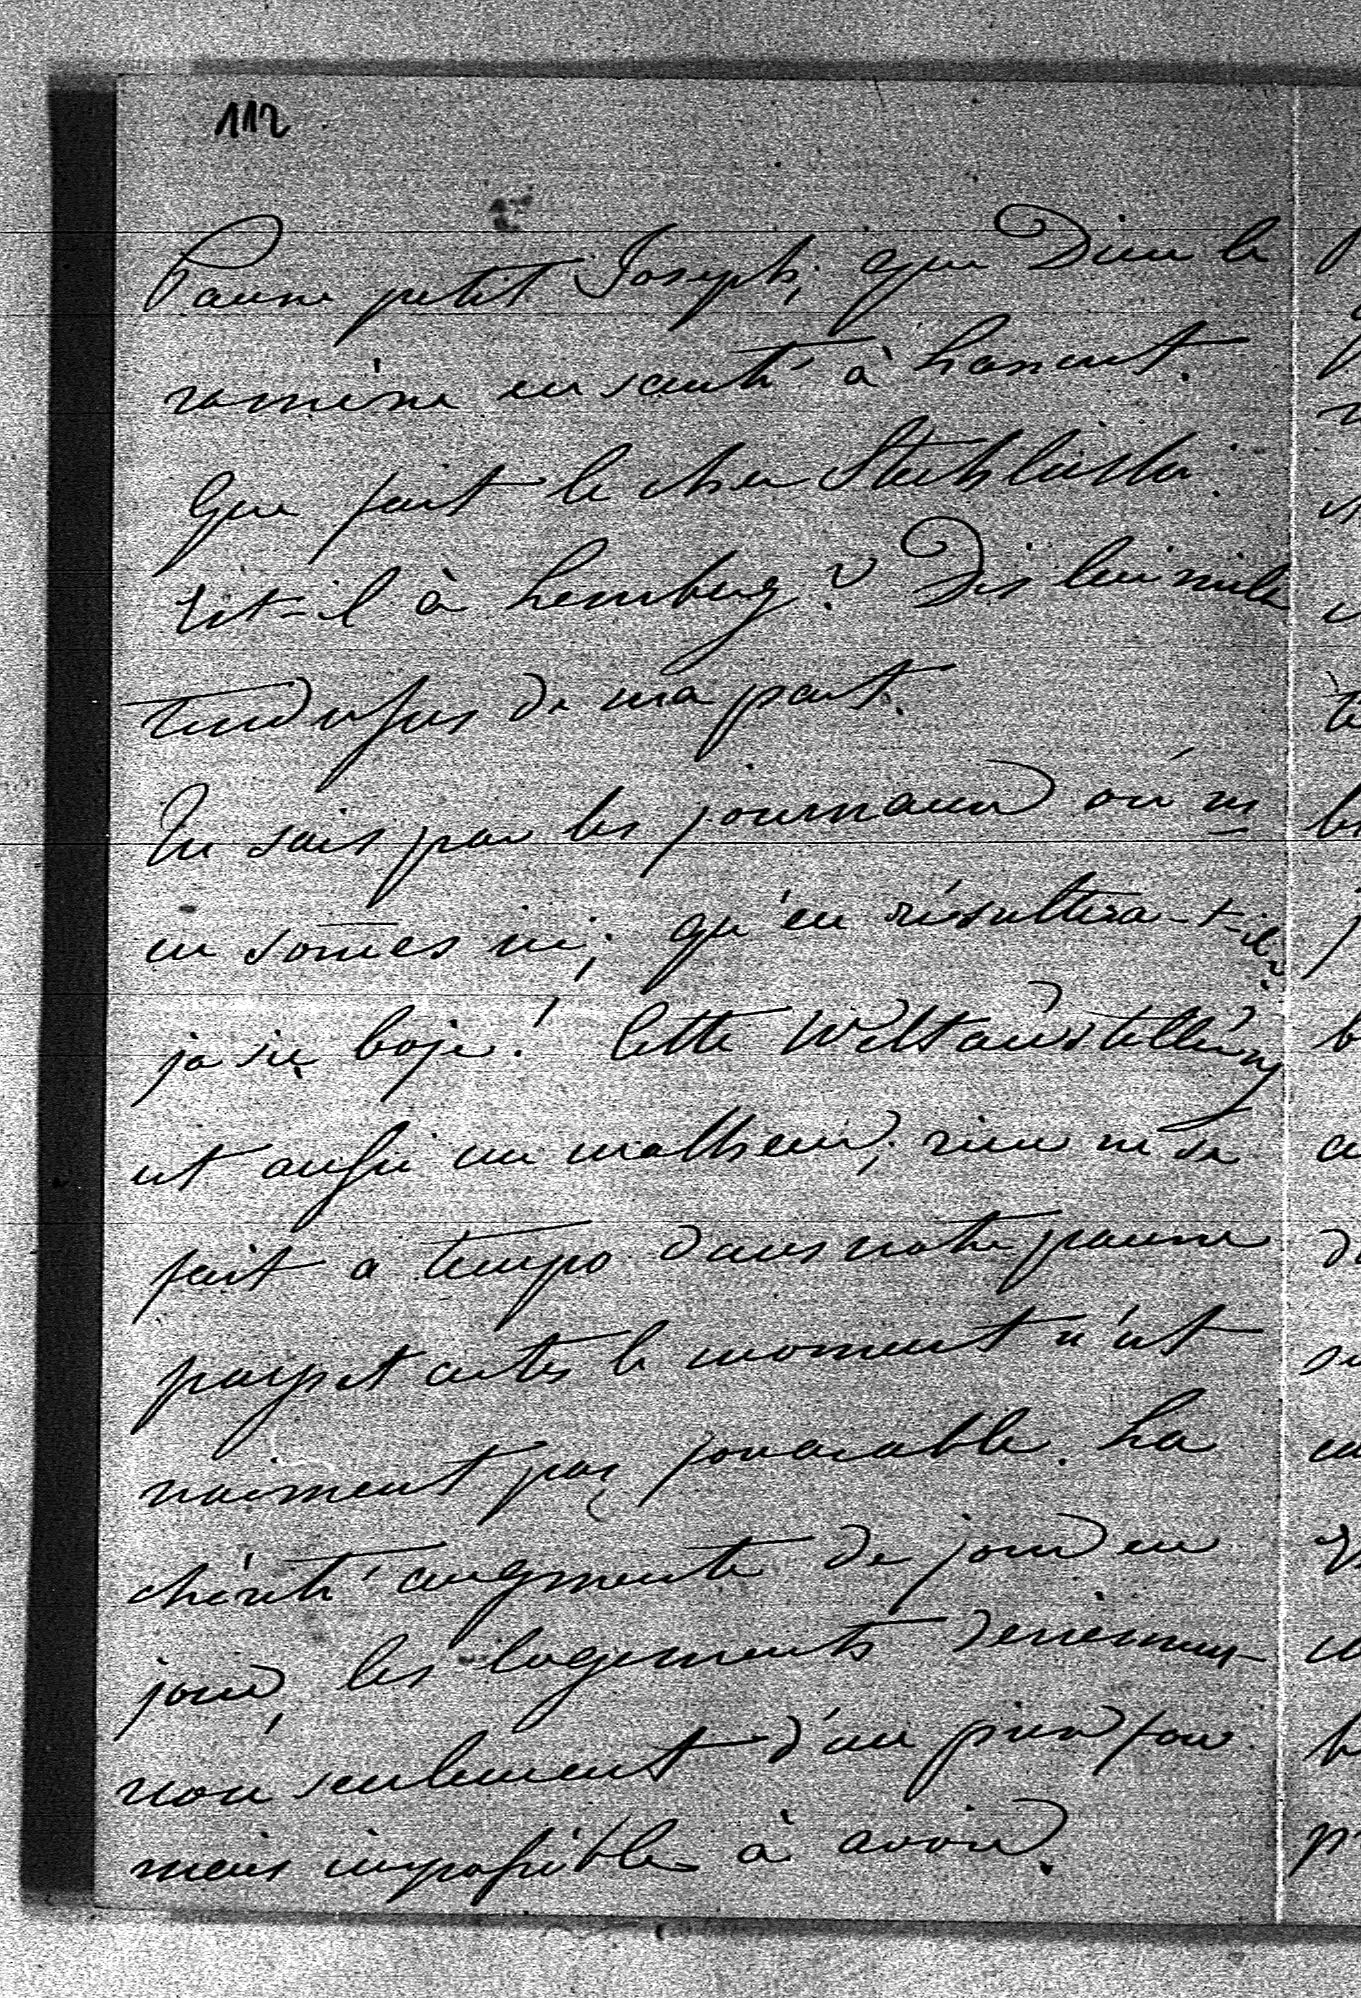 112
Pauvre petit Joseph, que Dieu le
ramène en santé à Lancut.
Que fait le cher
Est-il à Lemberg? Dis lui mille
tendresses de ma part.
Tu sais par les journaux où ns
en somes ici; qu'en résultera-t-il?
ja się boję! Cette Weltausstellung
est aussi un malheur, rien ne se
fait a tempo dans notre pauvre
pays et certes le moment n'est
vraiment pas favorable. La
chérté augmente de jour en
jour, les logements deviennent
non seulement d'un prix fou
mais impossibles à avoir.